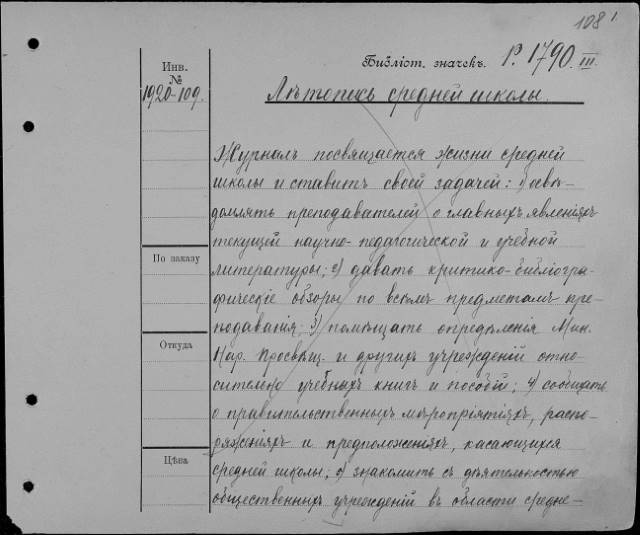 108¹
Инв.
№
1920-109.
Библіот. значекъ. Р. 1790. III.
Лѣтопись средней школы.
Журналъ посвящается жизни средней
школы и ставитъ своей задачей: 1) освѣ-
домлять преподавателей о главныхъ явленіяхъ
текущей научно-педагогической и учебной
литературы; 2) давать критико-библіогра-
фическіе обзоры по всѣмъ предметамъ пре-
подаванія; 3) помѣщать опредѣленія Мин.
Нар. Просвѣщ. и другихъ учрежденій отно-
сительно учебныхъ книгъ и пособій; 4) сообщать
о правительственныхъ мѣропріятіяхъ, распо-
ряженіяхъ и предположеніяхъ, касающихся
средней школы; 5) знакомить съ дѣятельностью
общественныхъ учрежденій въ области средне-
По заказу
Откуда
Цѣна